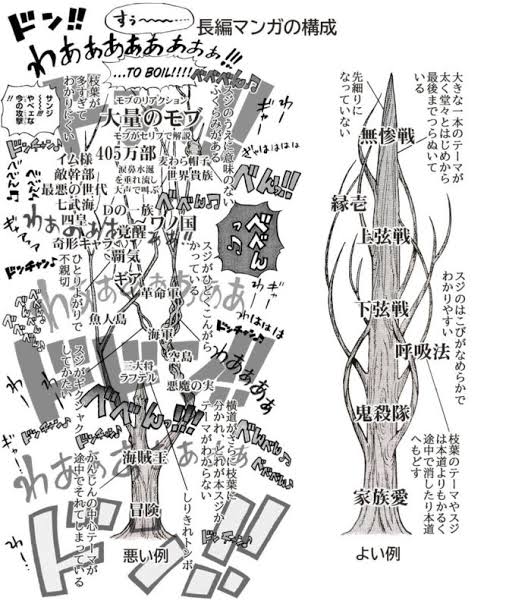 長編マンガの構成
ドン!!
すぅ~
わああああああぁぁ!!!
...TO BOIL!!!!
べべべん♪
枝葉が
多すぎて
わかりにくい
サンジ
やべェ
今の攻撃
!!
モブのリアクション
大量のモブ
モブがセリフで解説
405万部
涙鼻水涎
を垂れ流し
大声で叫ぶ
スジのうえに意味のない
ふくらみがある
ドンチャン♪
イム様
敵幹部
最悪の世代
七武海
四皇
奇形キャラ
麦わら帽子
世界貴族
Dの一族
ワノ国
覚醒
覇気
ギア
革命軍
ぎゃはははは
べべん♪
ドンチャン♪
ひとりよがりで
不親切
スジがひどくこんがら
かっている
魚人島
海軍
空島
三大将
ラフテル
悪魔の実
わははは
ドンチャン♪
わああああ
ドドン!!
べべべん!!!
スジがギクシャク
してかたい
横道がさらに枝葉に
分かれ、どれが本スジか
テーマがわからない
海賊王
冒険
しりきれトンボ
かんじんの中心テーマが
途中でそれてしまっている
ドン!!
悪い例
大きな一本のテーマが
太く堂々とはじめから
最後までつらぬいて
いる
先細りに
なっていない
無惨戦
縁壱
上弦戦
下弦戦
スジのはこびがなめらかで
わかりやすい
呼吸法
鬼殺隊
枝葉のテーマやスジ
は本道よりもかるく
途中で消したり本道
へもどす
家族愛
よい例